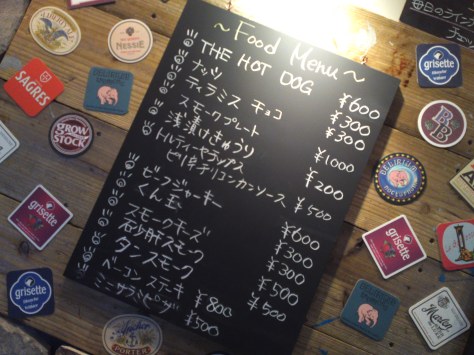 ~ Food Menu ~
THE HOT DOG ¥600
ナッツ ¥300
ティラミス チョコ ¥300
スモークプレート ¥1000
浅漬けきゅうり ¥200
トルティーヤラップス
ピリ辛チリコンカンソース ¥500
ビーフジャーキー ¥600
くん玉 ¥300
スモークチーズ ¥300
砂肝スモーク ¥500
タンスモーク ¥500
ベーコンステーキ ¥800
ミニサラミピザ ¥500
NESSIE
SAGRES
GROW
STOCK
grisette
grisette
PORTER
grisette
grisette